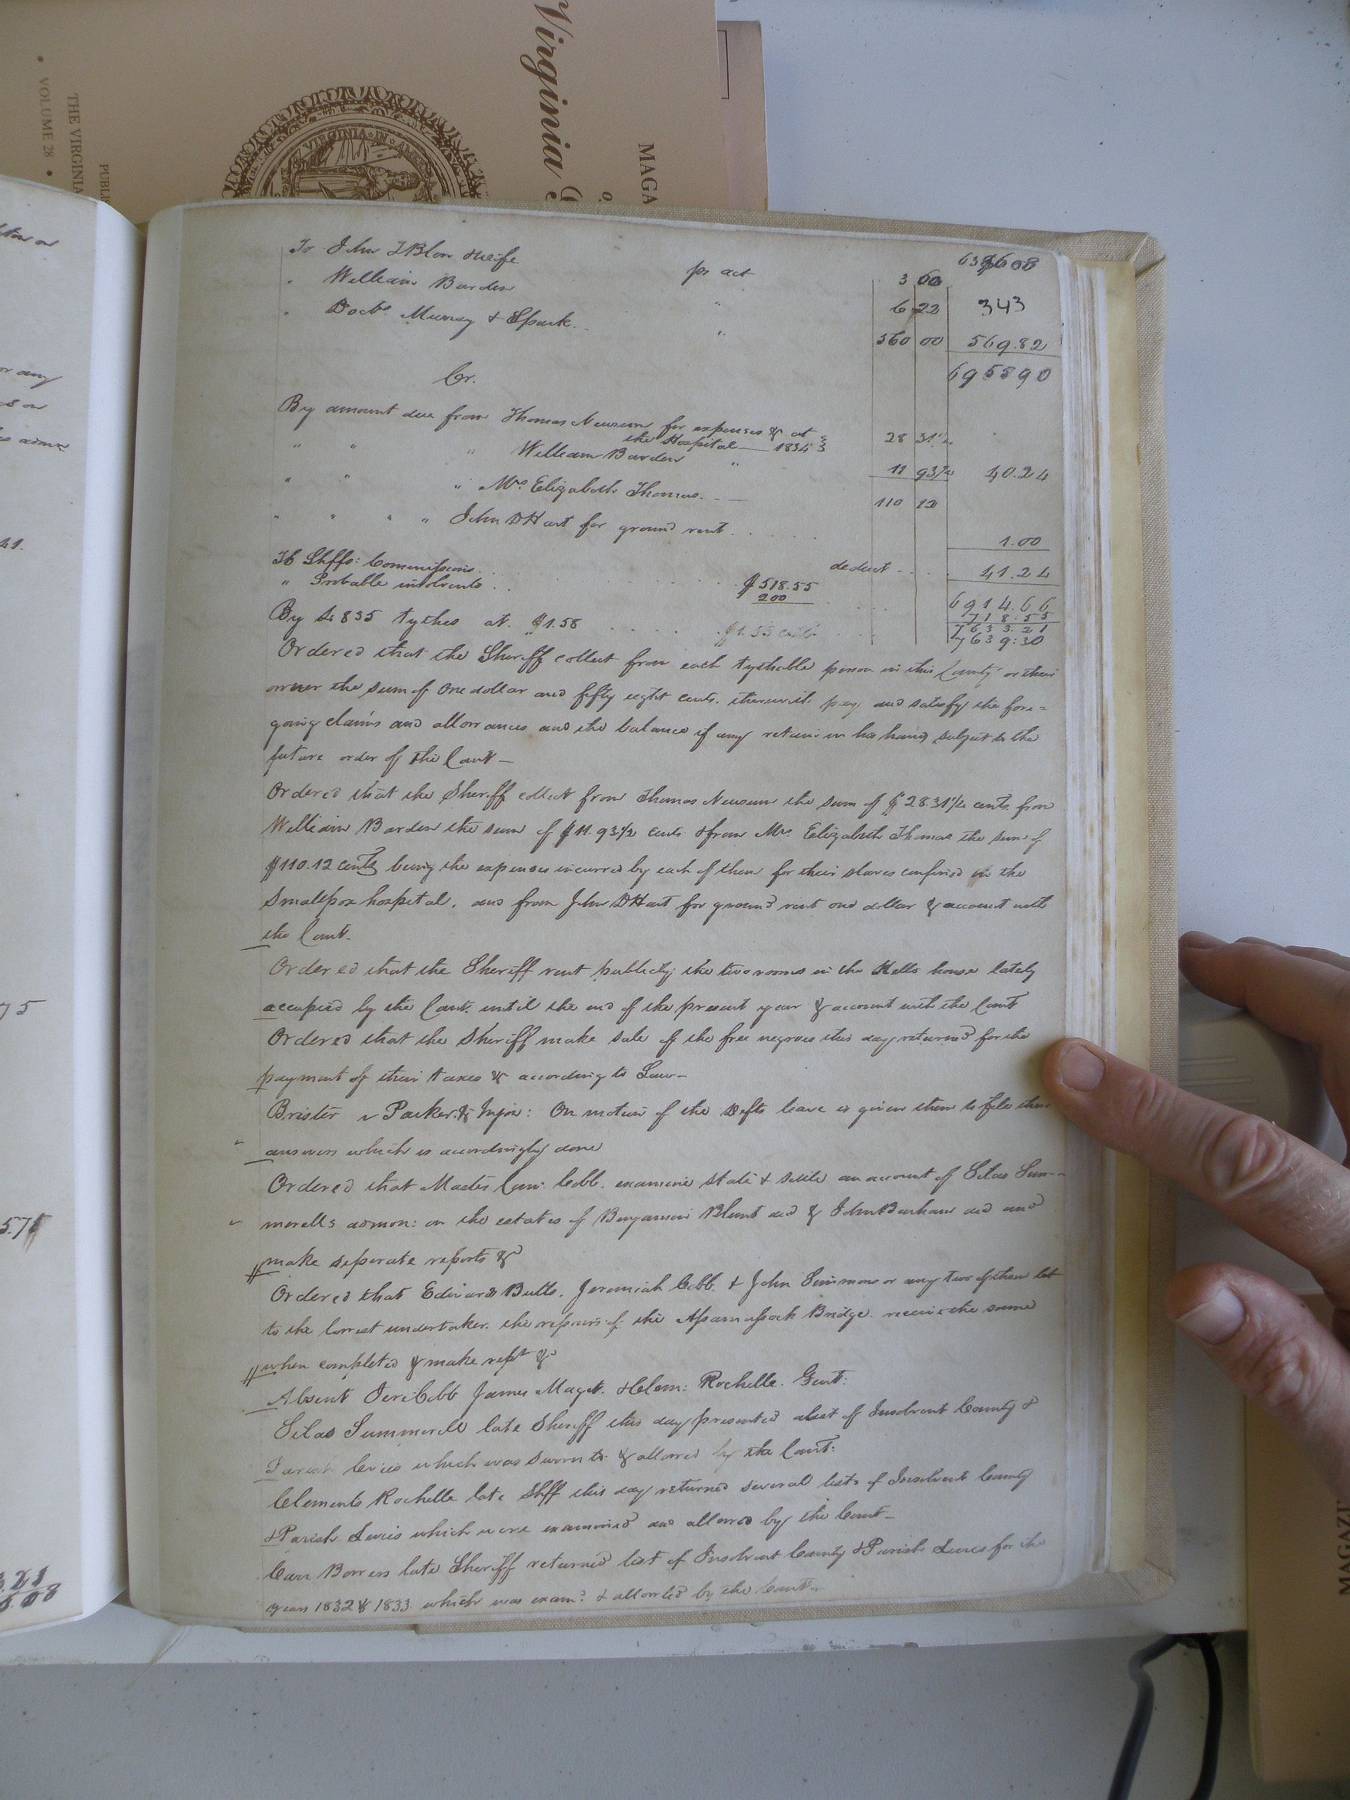 Virginia
MAGA
THE VIRGINIA
VOLUME 28
PUBL
VIRGINIA
To John T Blow & wife pr act 3 60 6386 08
" William Barden " 6 22 343
" Doctrs Murray & Spark " 560 00 569.82
695590
Cr.
By amount due from Thomas Newsum for expenses &c at
the Hospital 1834 28 31½
" " " William Barden " 11 93½ 40.24
" " " Mrs Elizabeth Thomas 110 12
" " " " John D Hart for ground rent 1.00
deduct 41.24
To Shffs: Commissions $518.55 6914.66
" Probable insolvents 200 718:55
7633.21
By 4835 tythes at $1.58 7639:30
Ordered that the Sheriff collect from each tythable person in this County or their
owner the sum of One dollar and fifty eight cents, therewith pay and satisfy the fore=
going claims and allowances and the balance if any retain in his hands subject to the
future order of the Court—
Ordered that the Sheriff collect from Thomas Newsum the sum of $28.31½ cents from
William Barden the sum of $11.93½ cents & from Mrs Elizabeth Thomas the sum of
$110.12 cents being the expenses incurred by each of them for their slaves confined in the
Smallpox hospital, and from John D Hart for ground rent one dollar & account with
the Court.
Ordered that the Sheriff rent publicly the two rooms in the Kello house lately
occupied by the Court, until the end of the present year & account with the Court
Ordered that the Sheriff make sale of the free negroes this day returned for the
payment of their taxes &c according to Law—
Brister v Parker &c Injon: On motion of the Defts leave is given them to file their
answers which is accordingly done
Ordered that Master Comr Cobb, examine state & settle an account of Silas Sum-
merells admon: on the estates of Benjamin Blunt decd & John Barham decd and
make seperate reports &c
Ordered that Edward Butts, Jeremiah Cobb, & John Simmons or any two of them let
to the lowest undertaker, the repairs of the Assamoosack Bridge, receive the same
when completed & make rept &c
Absent Jere: Cobb James Maget, & Clem: Rochelle. Gent:
Silas Summerell late Sheriff this day presented a list of Insolvent County &
Parish levies which was sworn to & allowed by the Court:
Clements Rochelle late Shff this day returned several lists of Insolvent County
& Parish Levies which were examined and allowed by the Court—
Carr Bowers late Sheriff returned list of Insolvent County & Parish Levies for the
years 1832 & 1833 which was examd & allowed by the Court
MAGAZI